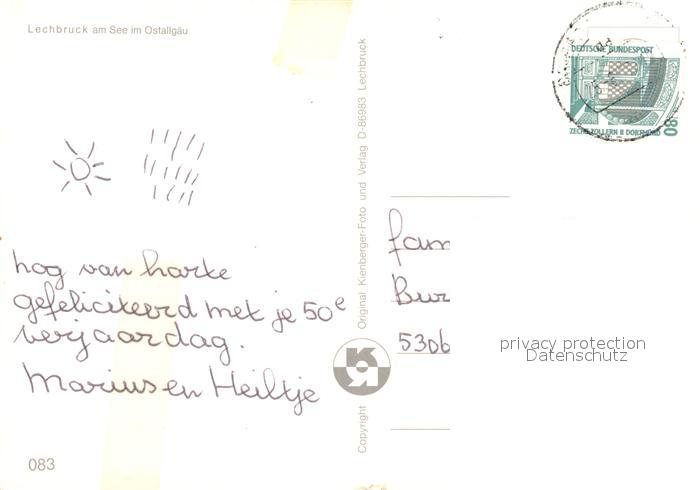 Lechbruck am See im Ostallgäu
DEUTSCHE BUNDESPOST
80
ZECHE ZOLLERN II DORTMUND
nog van harte
gefeliciteerd met je 50e
verjaardag.
Marius en Heiltje
083
Copyright Original Kienberger-Foto und Verlag D-86983 Lechbruck
fam
Bur
5306
privacy protection
Datenschutz